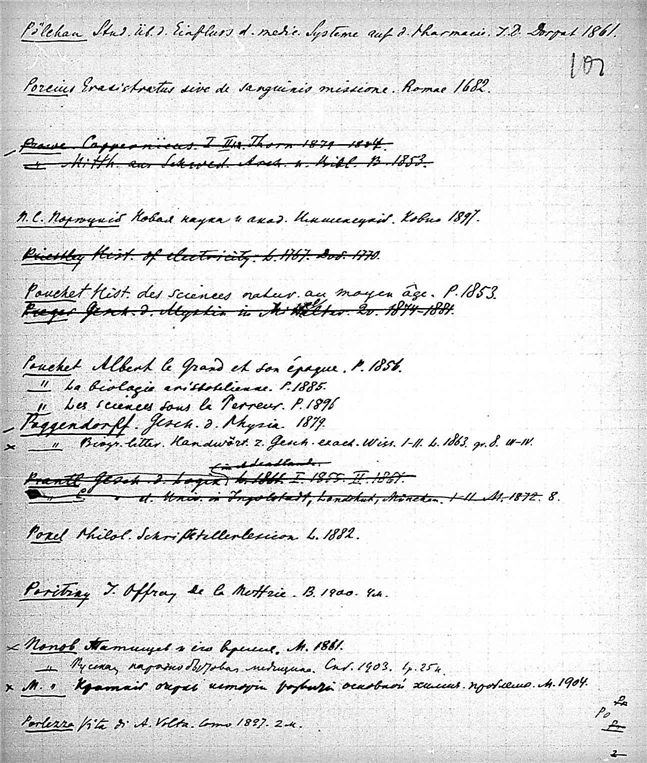 Pölchau Stud. üb. d. Einfluss d. medic. Systeme auf d. Pharmacie. I.D. Dorpat 1861.
101
Porcius Erasistratus sive de sanguinis missione. Romae 1682.
Prowe Coppernicus. I II Thorn 1879-1884.
" Mitth. aus Schwed. Arch. u. Bibl. B. 1853.
П.С. Порецкій Новая наука и акад. Имшенецкій. 1897.
Priestley Hist. of electricity. L. 1767. 1770.
Pouchet Hist. des sciences natur. au moyen âge. P. 1853.
Preger Gesch. d. Mystik in 1874-1881.
Pouchet Albert le Grand et son époque. P. 1856.
" La biologie aristotélienne. P. 1885.
" Les sciences sous la Terreur. P. 1896
Poggendorff. Gesch. d. Physik 1879.
" Biogr. litter. Handwört. z. Gesch. exact. Wiss. I-II. L. 1863. gr. 8. III-IV.
im Abendlande.
Prantl Gesch. d. Logik L. I. 1855. II. 1861.
" " d. Univ. in Ingolstadt, Landshut, München. I-II. M. 1872. 8.
Pökel Philol. Schriftstellerlexicon L. 1882.
Poritzky J. Offray de la Mettrie. B. 1900.
Поповъ Татищев и его время. М. 1861.
" Русская народно бытовая медицина. Спб. 1903.
М. " Краткій очерк исторіи развитія основной химич. проблемы. М. 1904.
Porlezza Vita di A. Volta. Como 1897.
Po